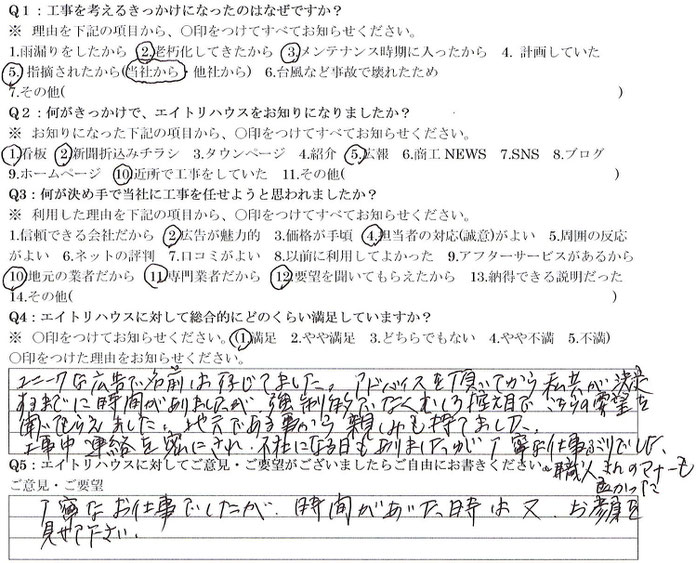 Q1：工事を考えるきっかけになったのはなぜですか？
※ 理由を下記の項目から、〇印をつけてすべてお知らせください。
1.雨漏りをしたから 2.老朽化してきたから 3.メンテナンス時期に入ったから 4. 計画していた
5. 指摘されたから(当社から・他社から) 6.台風など事故で壊れたため
7.その他( )
Q2：何がきっかけで、エイトリハウスをお知りになりましたか？
※ お知りになった下記の項目から、〇印をつけてすべてお知らせください。
1.看板 2.新聞折込みチラシ 3.タウンページ 4.紹介 5.広報 6.商工 NEWS 7.SNS 8.ブログ
9.ホームページ 10.近所で工事をしていた 11.その他( )
Q3：何が決め手で当社に工事を任せようと思われましたか？
※ 利用した理由を下記の項目から、〇印をつけてすべてお知らせください。
1.信頼できる会社だから 2.広告が魅力的 3.価格が手頃 4.担当者の対応(誠意)がよい 5.周囲の反応
がよい 6.ネットの評判 7.口コミがよい 8.以前に利用してよかった 9.アフターサービスがあるから
10.地元の業者だから 11.専門業者だから 12.要望を聞いてもらえたから 13.納得できる説明だった
14.その他( )
Q4：エイトリハウスに対して総合的にどのくらい満足していますか？
※ 〇印をつけてお知らせください。(1.満足 2.やや満足 3.どちらでもない 4.やや不満 5.不満)
〇印をつけた理由をお知らせください。
ユニークな広告で名前は存じてました。アドバイスを頂いてから私共が決定
するまでに時間がありましたが 強制的でなくむしろ控え目で こちらの要望を
聞いてもらえました。地元である事から 親しみも持てました。
工事中 連絡を密にされ、不在になる日もありましたが 丁寧な仕事ぶりでした、
職人さんのマナーも
良かった
Q5：エイトリハウスに対してご意見・ご要望がございましたらご自由にお書きください。
ご意見・ご要望
丁寧なお仕事でしたが、時間があいた時は又、お顔を
見せて下さい。